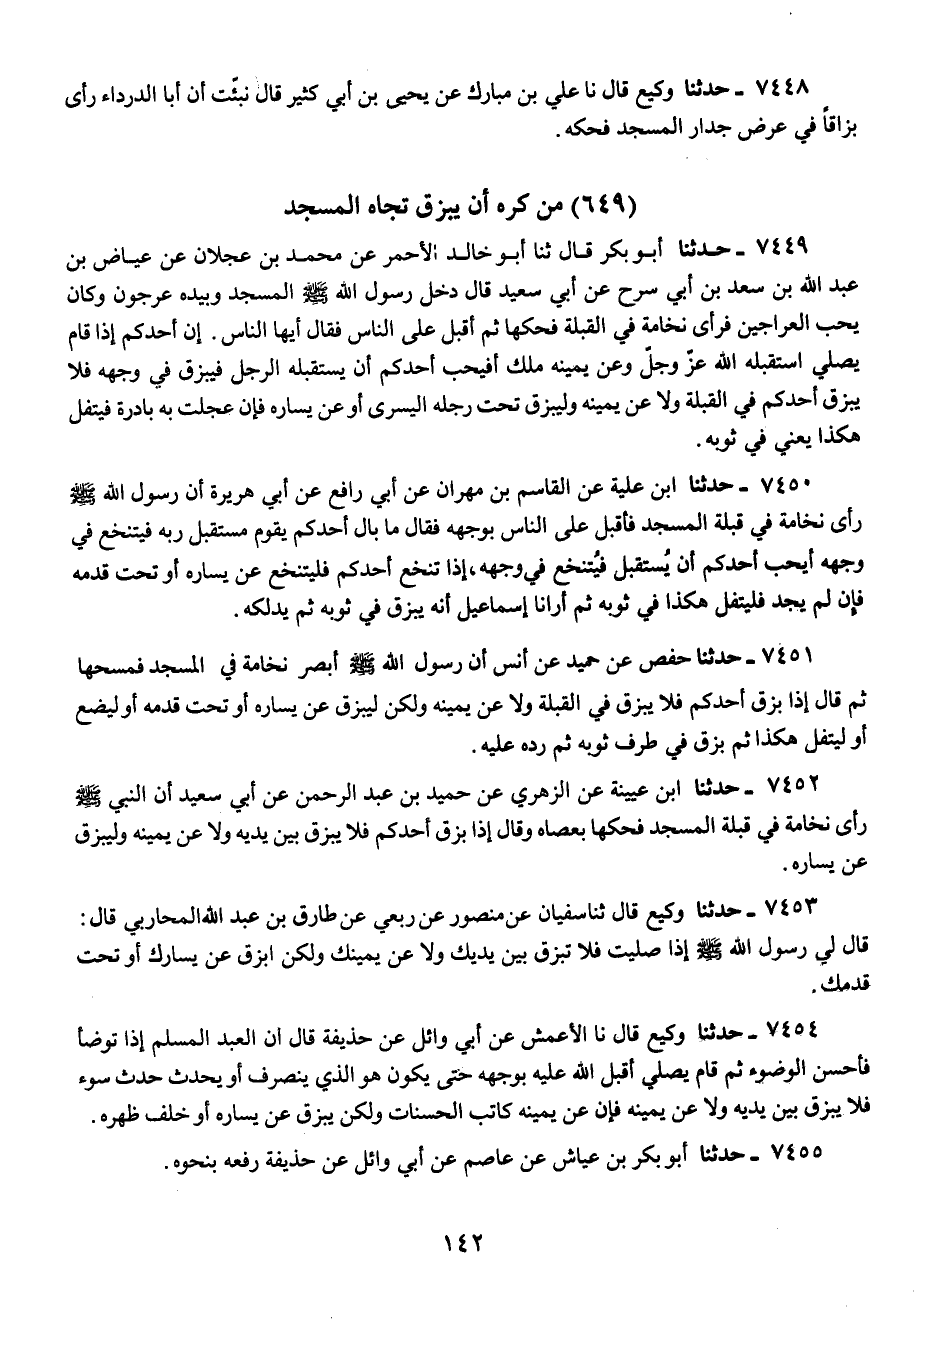 ٧٤٤٨ ـ حدثنا وكيع قال نا علي بن مبارك عن يحيى بن أبي كثير قال نبئت أن أبا الدرداء رأى
بزاقاً في عرض جدار المسجد فحكه .
(٦٤٩) من كره أن يبزق تجاه المسجد
٧٤٤٩ ـ حدثنا أبو بكر قال ثنا أبو خالد الأحمر عن محمد بن عجلان عن عياض بن
عبد الله بن سعد بن أبي سرح عن أبي سعيد قال دخل رسول الله ﷺ المسجد وبيده عرجون وكان
يحب العراجين فرأى نخامة في القبلة فحكها ثم أقبل على الناس فقال أيها الناس . إن أحدكم إذا قام
يصلي استقبله الله عزّ وجلّ وعن يمينه ملك أفيحب أحدكم أن يستقبله الرجل فيبزق في وجهه فلا
يبزق أحدكم في القبلة ولا عن يمينه وليبزق تحت رجله اليسرى أو عن يساره فإن عجلت به بادرة فيتفل
هكذا يعني في ثوبه .
٧٤٥٠ ـ حدثنا ابن علية عن القاسم بن مهران عن أبي رافع عن أبي هريرة أن رسول الله ﷺ
رأى نخامة في قبلة المسجد فأقبل على الناس بوجهه فقال ما بال أحدكم يقوم مستقبل ربه فيتنخع في
وجهه أيحب أحدكم أن يُستقبل فيُتنخع في وجهه ، إذا تنخع أحدكم فليتنخع عن يساره أو تحت قدمه
فإن لم يجد فليتفل هكذا في ثوبه ثم أرانا إسماعيل أنه يبزق في ثوبه ثم يدلكه .
٧٤٥١ ـ حدثنا حفص عن حميد عن أنس أن رسول الله ﷺ أبصر نخامة في المسجد فمسحها
ثم قال إذا بزق أحدكم فلا يبزق في القبلة ولا عن يمينه ولكن ليبزق عن يساره أو تحت قدمه أو ليضع
أو ليتفل هكذا ثم بزق في طرف ثوبه ثم رده عليه .
٧٤٥٢ ـ حدثنا ابن عيينة عن الزهري عن حميد بن عبد الرحمن عن أبي سعيد أن النبي ﷺ
رأى نخامة في قبلة المسجد فحكها بعصاه وقال إذا بزق أحدكم فلا يبزق بين يديه ولا عن يمينه وليبزق
عن يساره .
٧٤٥٣ ـ حدثنا وكيع قال ثنا سفيان عن منصور عن ربعي عن طارق بن عبد الله المحاربي قال :
قال لي رسول الله ﷺ إذا صليت فلا تبزق بين يديك ولا عن يمينك ولكن ابزق عن يسارك أو تحت
قدمك .
٧٤٥٤ ـ حدثنا وكيع قال نا الأعمش عن أبي وائل عن حذيفة قال ان العبد المسلم إذا توضأ
فأحسن الوضوء ثم قام يصلي أقبل الله عليه بوجهه حتى يكون هو الذي ينصرف أو يحدث حدث سوء
فلا يبزق بين يديه ولا عن يمينه فإن عن يمينه كاتب الحسنات ولكن يبزق عن يساره أو خلف ظهره .
٧٤٥٥ ـ حدثنا أبو بكر بن عياش عن عاصم عن أبي وائل عن حذيفة رفعه بنحوه .
١٤٢